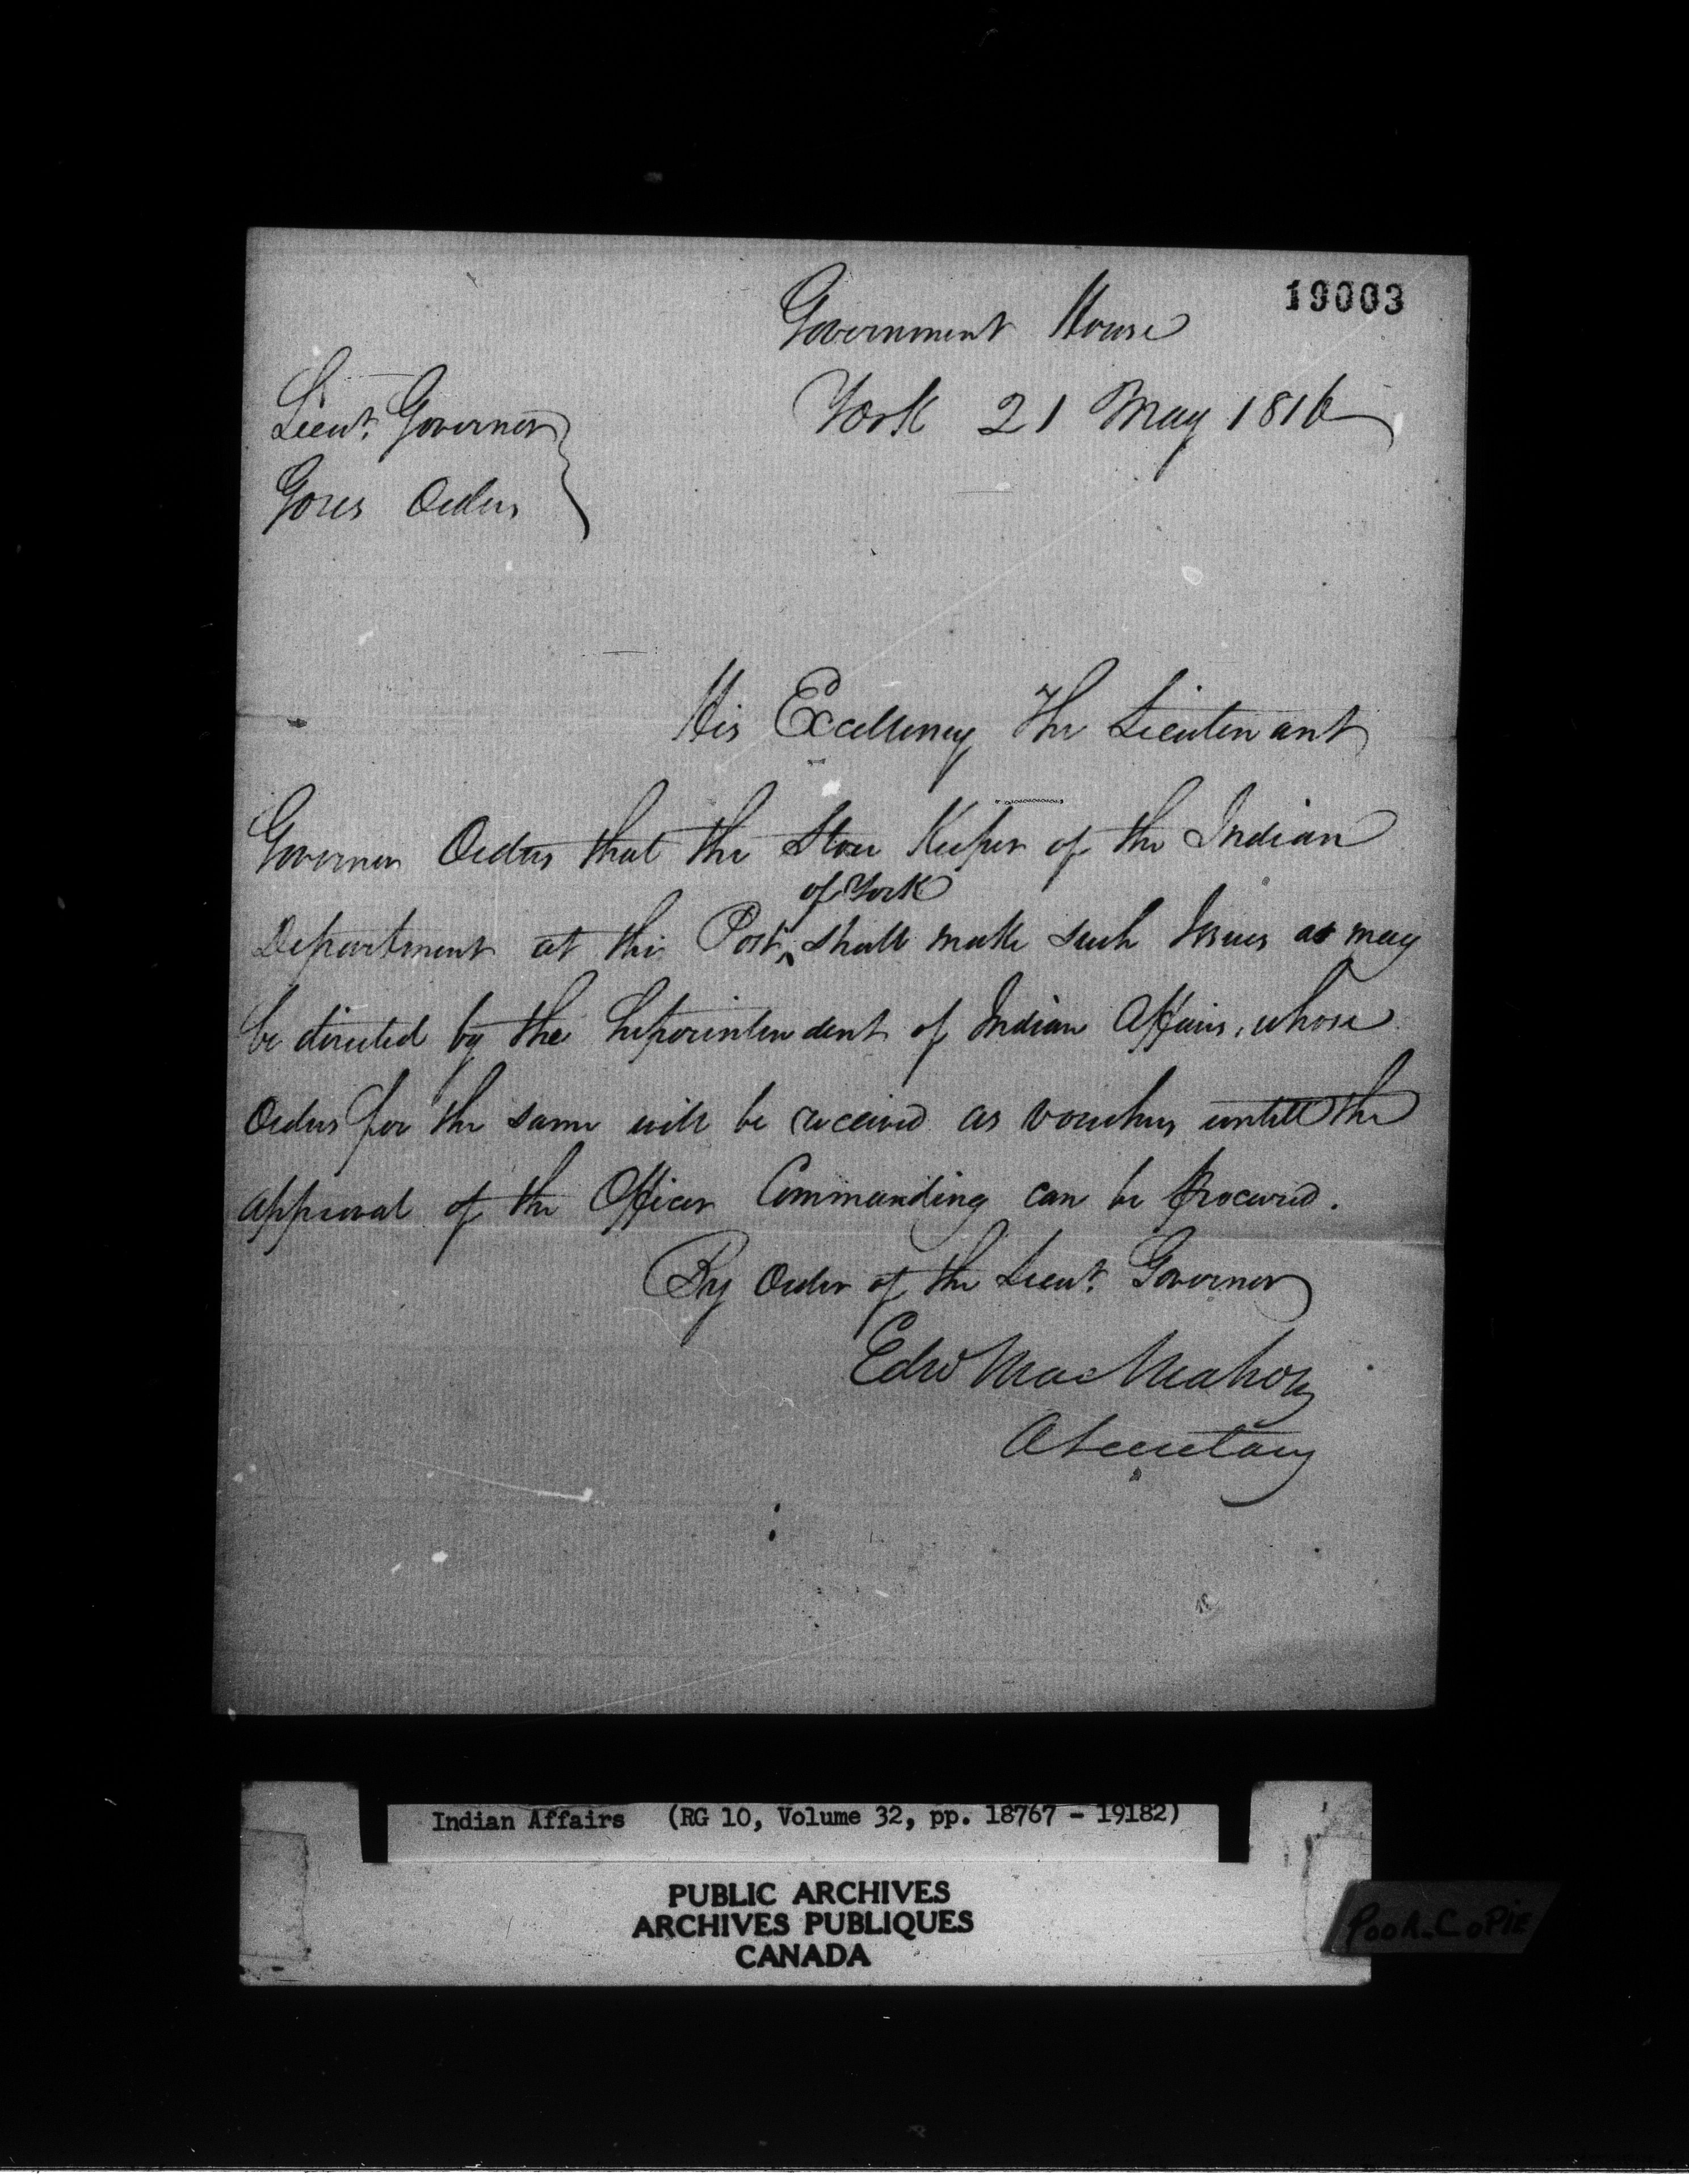 19003
Government House
York 21 May 1816
Lieut. Governor
Gores Orders
His Excellency The Lieutenant
Governor Orders that the Store Keeper of the Indian
of York
Department at the Post, shall make such Issues as may
be directed by the Superintendent of Indian Affairs, whose
Orders for the same will be received as vouchers untill the
approval of the Officer Commanding can be procured.
By Order of the Lieut. Governor
Edw MacMahon
A Secretary
Indian Affairs (RG 10, Volume 32, pp. 18767 - 19182)
PUBLIC ARCHIVES
ARCHIVES PUBLIQUES
CANADA
POOR COPIE